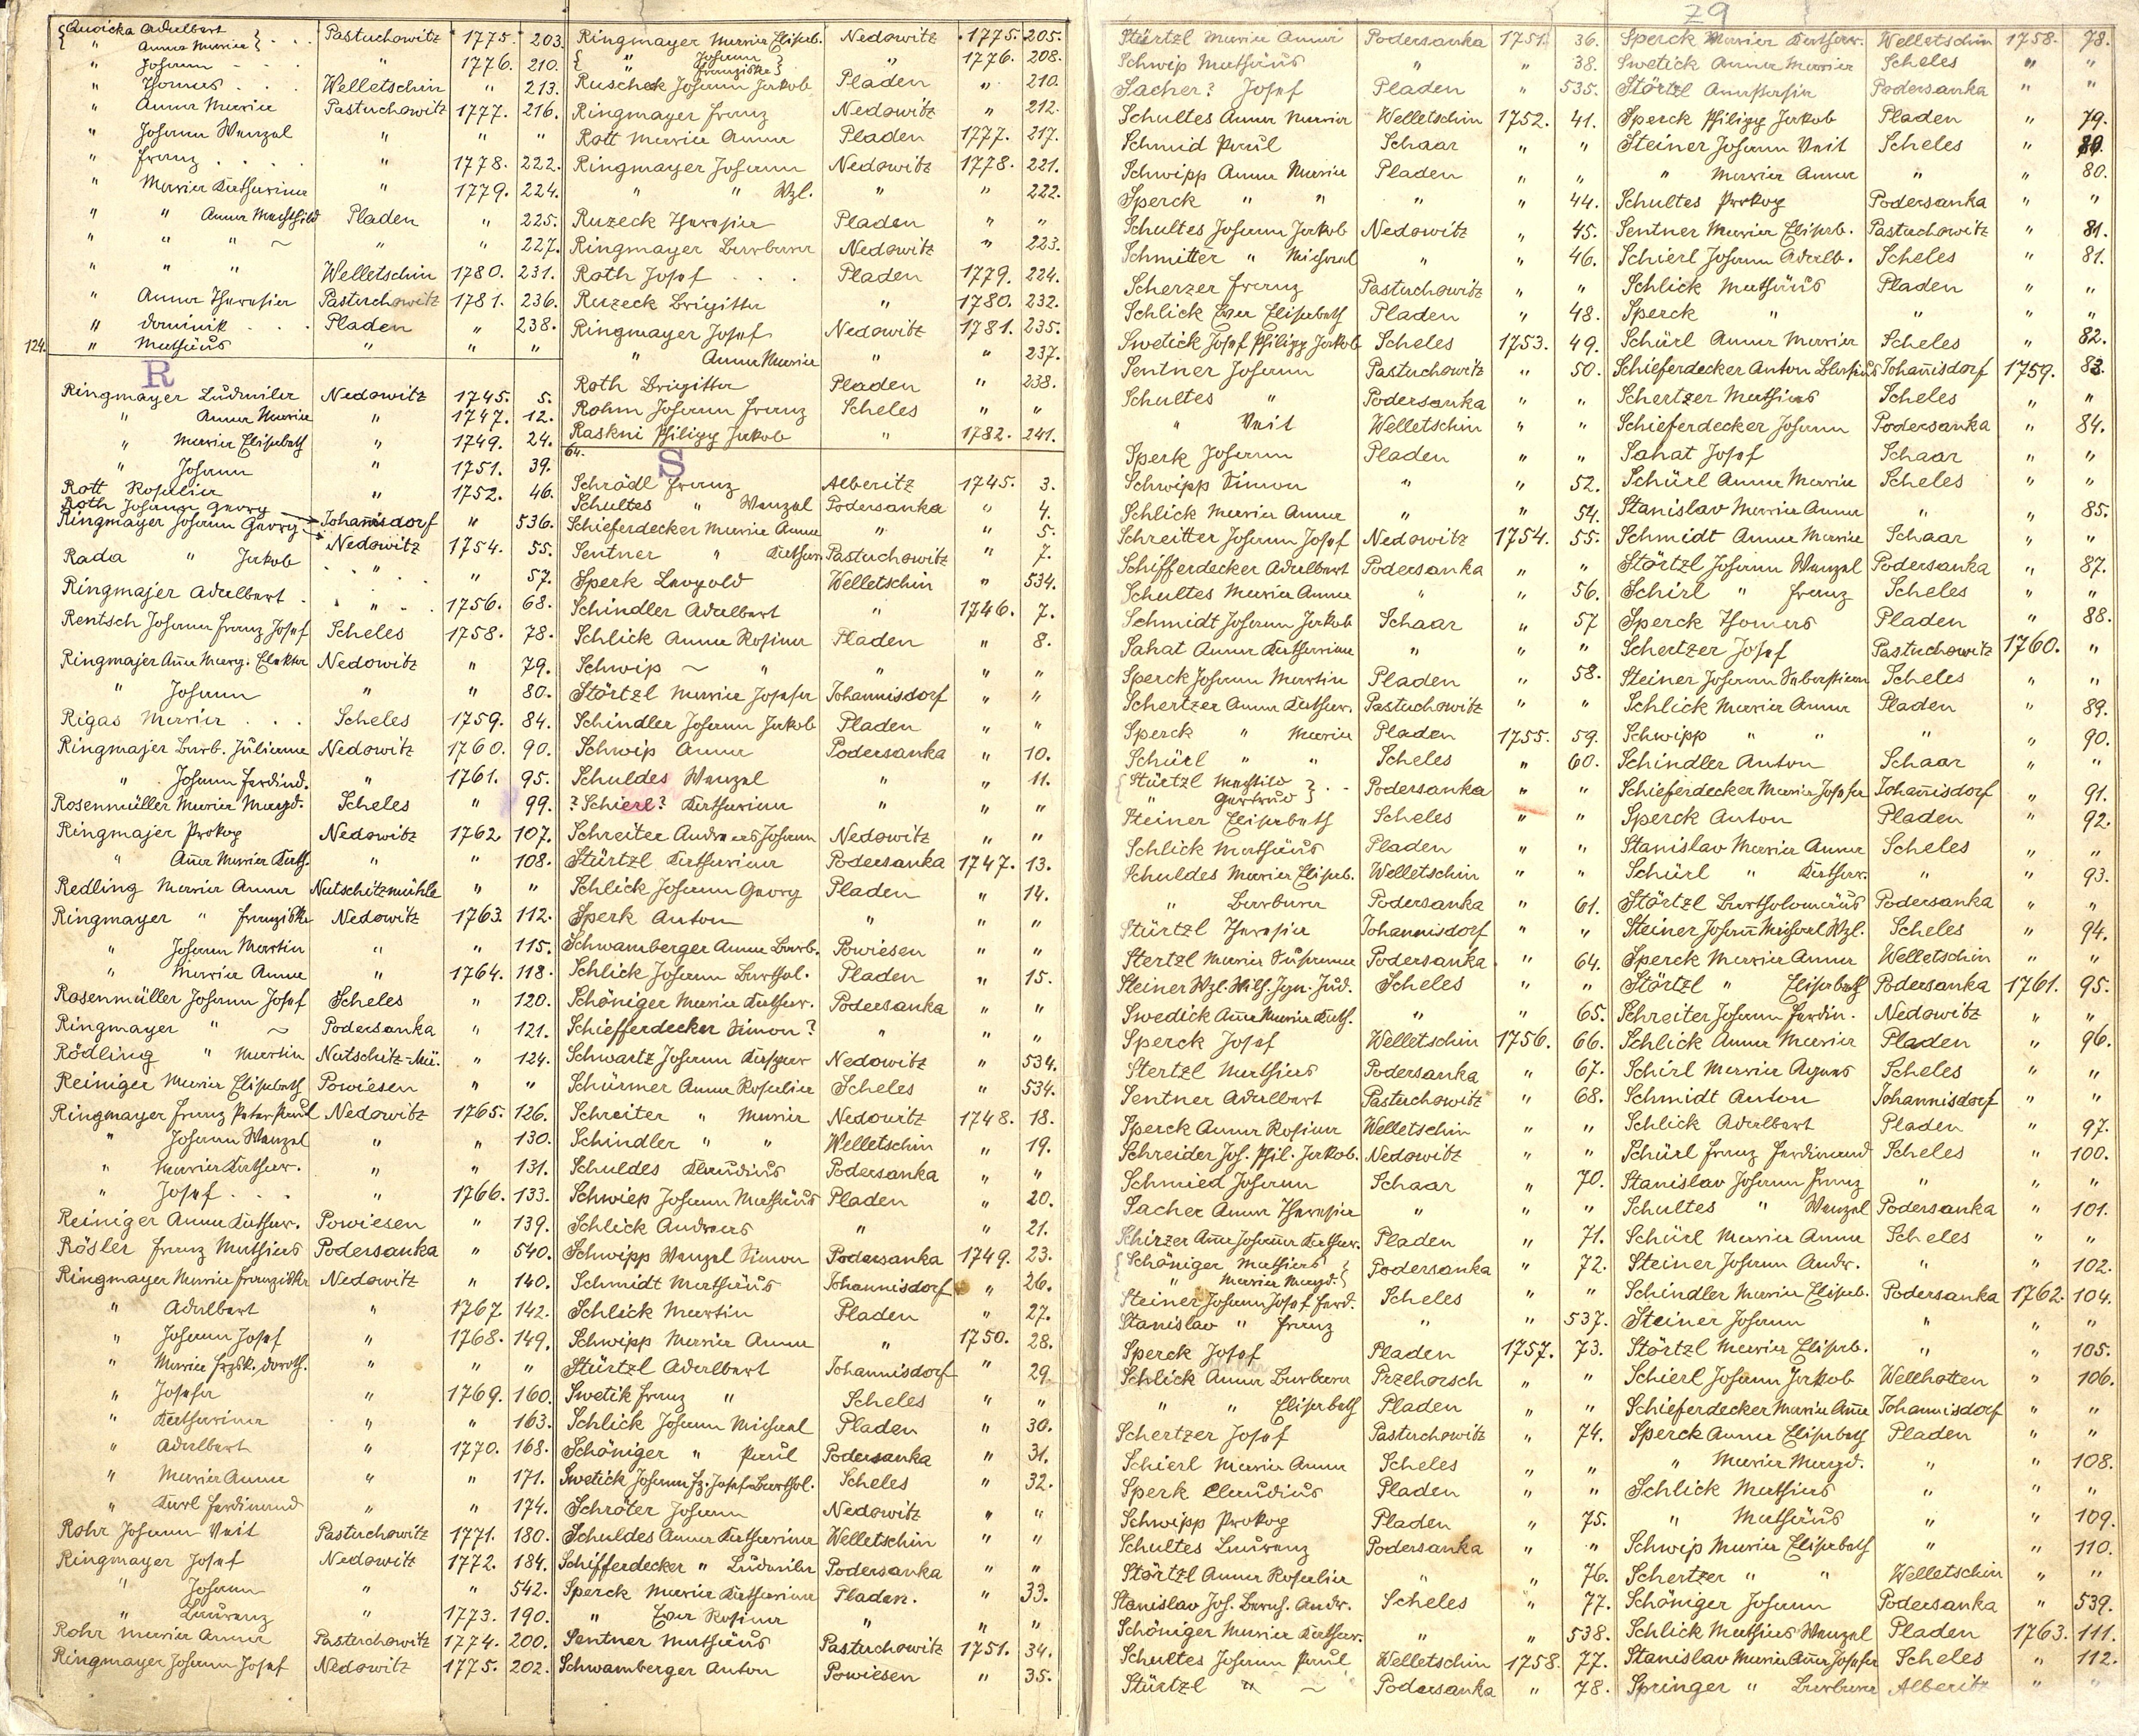 79
{ Quoicka Adalbert } . . Pastuchowitz 1775. 203.
{ " Anna Maria }
" Johann - - - " 1776. 210.
" Thomas . . . Welletschin " 213.
" Anna Maria Pastuchowitz 1777. 216.
" Johann Wenzel " " "
" Franz . . . . " 1778. 222.
" Maria Katharina " 1779. 224.
" " Anna Mechthild Pladen " 225.
" " " ~ " " 227.
" " " Welletschin 1780. 231.
" Anna Theresia Pastuchowitz 1781. 236.
" Dominik . . . Pladen " 238.
124. " Mathäus " " "
R
Ringmayer Ludmila Nedowitz 1745. 5.
" Anna Maria " 1747. 12.
" Maria Elisabeth " 1749. 24.
" Johann " 1751. 39.
Rott Rosalia " 1752. 46.
Roth Johann Georg Johannisdorf " 536.
Ringmayer Johann Georg Nedowitz 1754. 55.
Rada " Jakob " " 57.
Ringmajer Adalbert . " 1756. 68.
Rentsch Johann Franz Josef Scheles 1758. 78.
Ringmajer Anna Marg. Elekta Nedowitz " 79.
" Johann " " 80.
Rigas Maria . . . Scheles 1759. 84.
Ringmajer Barb. Juliana Nedowitz 1760. 90.
" Johann Ferdind. " 1761. 95.
Rosenmüller Maria Magd. Scheles " 99.
Ringmajer Prokop Nedowitz 1762 107.
" Anna Maria Kath. " " 108.
Redling Maria Anna Natschetzmühle " "
Ringmayer " Franziska Nedowitz 1763. 112.
" Johann Martin " " 115.
" Maria Anna " 1764. 118.
Rosenmüller Johann Josef Scheles " 120.
Ringmayer " ~ Podersanka " 121.
Rödling " Martin Natschetz-Mü. " 124.
Reiniger Maria Elisabeth Powiesen " "
Ringmayer Franz Peter Paul Nedowitz 1765. 126.
" Johann Wenzel " " 130.
" Maria Kathar. " " 131.
" Josef . . . " 1766. 133.
Reiniger Anna Kathar. Powiesen " 139.
Rösler Franz Mathias Podersanka " 540.
Ringmayer Maria Franziska Nedowitz " 140.
" Adalbert " 1767. 142.
" Johann Josef " 1768. 149.
" Maria Frzsk. Doroth. " " "
" Josefa " 1769. 160.
" Katharina " " 163.
" Adalbert " 1770. 168.
" Maria Anna " " 171.
" Karl Ferdinand " " 174.
Rohr Johann Veit Pastuchowitz 1771. 180.
Ringmayer Josef Nedowitz 1772. 184.
" Johann " " 542.
" Laurenz " 1773. 190.
Rohr Maria Anna Pastuchowitz 1774. 200.
Ringmayer Johann Josef Nedowitz 1775. 202.
Ringmayer Maria Elisab. Nedowitz 1775. 205.
{ " Johann } " 1776. 208.
Franziska }
Ruscheck Johann Jakob Pladen " 210.
Ringmayer Franz Nedowitz " 212.
Rott Maria Anna Pladen 1777. 217.
Ringmayer Johann Nedowitz 1778. 221.
" " Wzl. " " 222.
Ruzeck Theresia Pladen " "
Ringmayer Barbara Nedowitz " 223.
Roth Josef . . . Pladen 1779. 224.
Ruzeck Brigitta " 1780. 232.
Ringmayer Josef Nedowitz 1781. 235.
" Anna Maria " " 237.
Roth Brigitta Pladen " 238.
Rohm Johann Franz Scheles " "
Raskni Philipp Jakob " 1782. 241.
64.
S
Schrödl Franz Alberitz 1745. 3.
Schultes " Wenzel Podersanka " 4.
Schieferdecker Maria Anna " " 5.
Sentner " Kathar. Pastuchowitz " 7.
Sperk Leopold Welletschin " 534.
Schindler Adalbert " 1746. 7.
Schlick Anna Rosina Pladen " 8.
Schwip ~ " " " "
Störtzl Maria Josefa Johannisdorf " "
Schindler Johann Jakob Pladen " "
Schwip Anna Podersanka " 10.
Schuldes Wenzel " " 11.
? Schierl? Katharina " " "
Schreiter Andreas Johann Nedowitz " "
Stürtzl Katharina Podersanka 1747. 13.
Schlick Johann Georg Pladen " 14.
Sperk Anton " " "
Schwamberger Anna Barb. Powiesen " "
Schlick Johann Barthol. Pladen " 15.
Schöniger Maria Kathar. Podersanka " "
Schiefferdecker Simon? " " "
Schwartz Johann Kaspar Nedowitz " 534.
Schürmer Anna Rosalia Scheles " 534.
Schreiter " Maria Nedowitz 1748. 18.
Schindler " " Welletschin " 19.
Schuldes Klaudius Podersanka " "
Schwiep Johann Mathäus Pladen " 20.
Schlick Andreas " " 21.
Schwipp Wenzel Simon Podersanka 1749. 23.
Schmidt Mathäus Johannisdorf " 26.
Schlick Martin Pladen " 27.
Schwipp Maria Anna " 1750. 28.
Stürtzl Adalbert Johannisdorf " 29.
Swetik Franz " Scheles " "
Schlick Johann Michael Pladen " 30.
Schöniger " Paul Podersanka " 31.
Swetick Johann Fz. Josef Barthol. Scheles " 32.
Schröter Johann Nedowitz " "
Schuldes Anna Katharina Welletschin " "
Schifferdecker " Ludmila Podersanka " "
Sperck Maria Katharina Pladen. " 33.
" Eva Rosina " " "
Sentner Mathäus Pastuchowitz 1751. 34.
Schwamberger Anton Powiesen " 35.
Stürtzl Maria Anna Podersanka 1751. 36.
Schwip Mathäus " " 38.
Sacher? Josef Pladen " 535.
Schultes Anna Maria Welletschin 1752. 41.
Schmid Paul Schaar " "
Schwipp Anna Maria Pladen " "
Sperck " " " " 44.
Schultes Johann Jakob Nedowitz " 45.
Schmitter " Michael " " 46.
Scherzer Franz Pastuchowitz " "
Schlick Eva Elisabeth Pladen " 48.
Swetick Josef Philipp Jakob Scheles 1753. 49.
Sentner Johann Pastuchowitz " 50.
Schultes " Podersanka " "
" Veit Welletschin " "
Sperk Johann Pladen " "
Schwipp Simon " " 52.
Schlick Maria Anna " " 54.
Schreitter Johann Josef Nedowitz 1754. 55.
Schifferdecker Adalbert Podersanka " "
Schultes Maria Anna " " 56.
Schmidt Johann Jakob Schaar " 57
Sahat Anna Katharina " " "
Sperck Johann Martin Pladen " 58.
Schertzer Anna Kathar. Pastuchowitz " "
Sperck " Maria Pladen 1755. 59.
Schürl " " Scheles " 60.
{ Stürtzl Mechtild } . - Podersanka " "
{ " Gertrud }
Steiner Elisabeth Scheles " "
Schlick Mathäus Pladen " "
Schuldes Maria Elisab. Welletschin " "
" Barbara Podersanka " 61.
Stürtzl Theresia Johannisdorf " "
Stertzl Maria Susanna Podersanka. " 64.
Steiner Wzl. Wilh. Ign. Jud. Scheles " "
Swedick Anna Maria Kath. " " 65.
Sperck Josef Welletschin 1756. 66.
Stertzl Mathias Podersanka " 67.
Sentner Adalbert Pastuchowitz " 68.
Sperck Anna Rosina Welletschin " "
Schreider Jos. Phil. Jakob. Nedowitz " "
Schmied Johann Schaar " 70.
Sacher Anna Theresia " " "
Schirzer Anna Johanna Kathar. Pladen " 71.
{ Schöniger Mathias } Podersanka " 72.
{ " Maria Magd. }
Steiner Johann Josef Ferd. Scheles " "
Stanislav " Franz " " 537.
Sperck Josef Pladen 1757. 73.
Schlick Anna Barbara Przehorsch " "
" " Elisabeth Pladen " "
Schertzer Josef Pastuchowitz " 74.
Schierl Maria Anna Scheles " "
Sperk Claudius Pladen " "
Schwipp Prokop Pladen " 75.
Schultes Laurenz Podersanka " "
Störtzl Anna Rosalia " " 76.
Stanislav Jos. Bernh. Andr. Scheles " 77.
Schöniger Maria Kathar. " " 538.
Schultes Johann Paul Welletschin 1758. 77.
Stürtzl " ~ Podersanka " 78.
Sperck Maria Kathar. Welletschin 1758. 78.
Swetick Anna Maria Scheles " "
Störtzl Anastasia Podersanka " "
Sperck Philipp Jakob Pladen " 79.
Steiner Johann Veit Scheles " 80.
" Maria Anna " " 80.
Schultes Prokop Podersanka " "
Sentner Maria Elisab. Pastuchowitz " 81.
Schierl Johann Adalb. Scheles " 81.
Schlick Mathäus Pladen " "
Sperck " " " "
Schürl Anna Maria Scheles " 82.
Schieferdecker Anton Blasius Johannisdorf 1759. 83.
Schertzer Mathias Scheles " "
Schieferdecker Johann Podersanka " 84.
Sahat Josef Schaar " "
Schürl Anna Maria Scheles " "
Stanislav Maria Anna " " 85.
Schmidt Anna Maria Schaar " "
Störtzl Johann Wenzel Podersanka " 87.
Schirl " Franz Scheles " "
Sperck Thomas Pladen " 88.
Schertzer Josef Pastuchowitz 1760. "
Steiner Johann Sebastian Scheles " "
Schlick Maria Anna Pladen " 89.
Schwipp " " " " 90.
Schindler Anton Schaar " "
Schieferdecker Maria Josefa Johannisdorf " 91.
Sperck Anton Pladen " 92.
Stanislav Maria Anna Scheles " "
Schürl " Kathar. " " 93.
Störtzl Bartholomäus Podersanka " "
Steiner Johann Michael Wzl. Scheles " 94.
Sperck Maria Anna Welletschin " "
Störtzl " Elisabeth Podersanka 1761. 95.
Schreiter Johann Ferdin. Nedowitz " "
Schlick Anna Maria Pladen " 96.
Schirl Maria Agnes Scheles " "
Schmidt Anton Johannisdorf " "
Schlick Adalbert Pladen " 97.
Schürl Franz Ferdinand Scheles " 100.
Stanislav Johann Franz " " "
Schultes " Wenzel Podersanka " 101.
Schürl Maria Anna Scheles " "
Steiner Johann Andr. " " 102.
Schindler Maria Elisab. Podersanka 1762. 104.
Steiner Johann " " "
Störtzl Maria Elisab. " " 105.
Schierl Johann Jakob Wellhotten " 106.
Schieferdecker Maria Anna Johannisdorf " "
Sperck Anna Elisabeth Pladen " "
" Maria Magd. " " 108.
Schlick Mathias " " "
" Mathäus " " 109.
Schwip Maria Elisabeth " " 110.
Schertzer " " Welletschin " "
Schöniger Johann Podersanka " 539.
Schlick Mathias Wenzel Pladen 1763. 111.
Stanislav Maria Anna Josefa Scheles " 112.
Springer " Barbara Alberitz " "